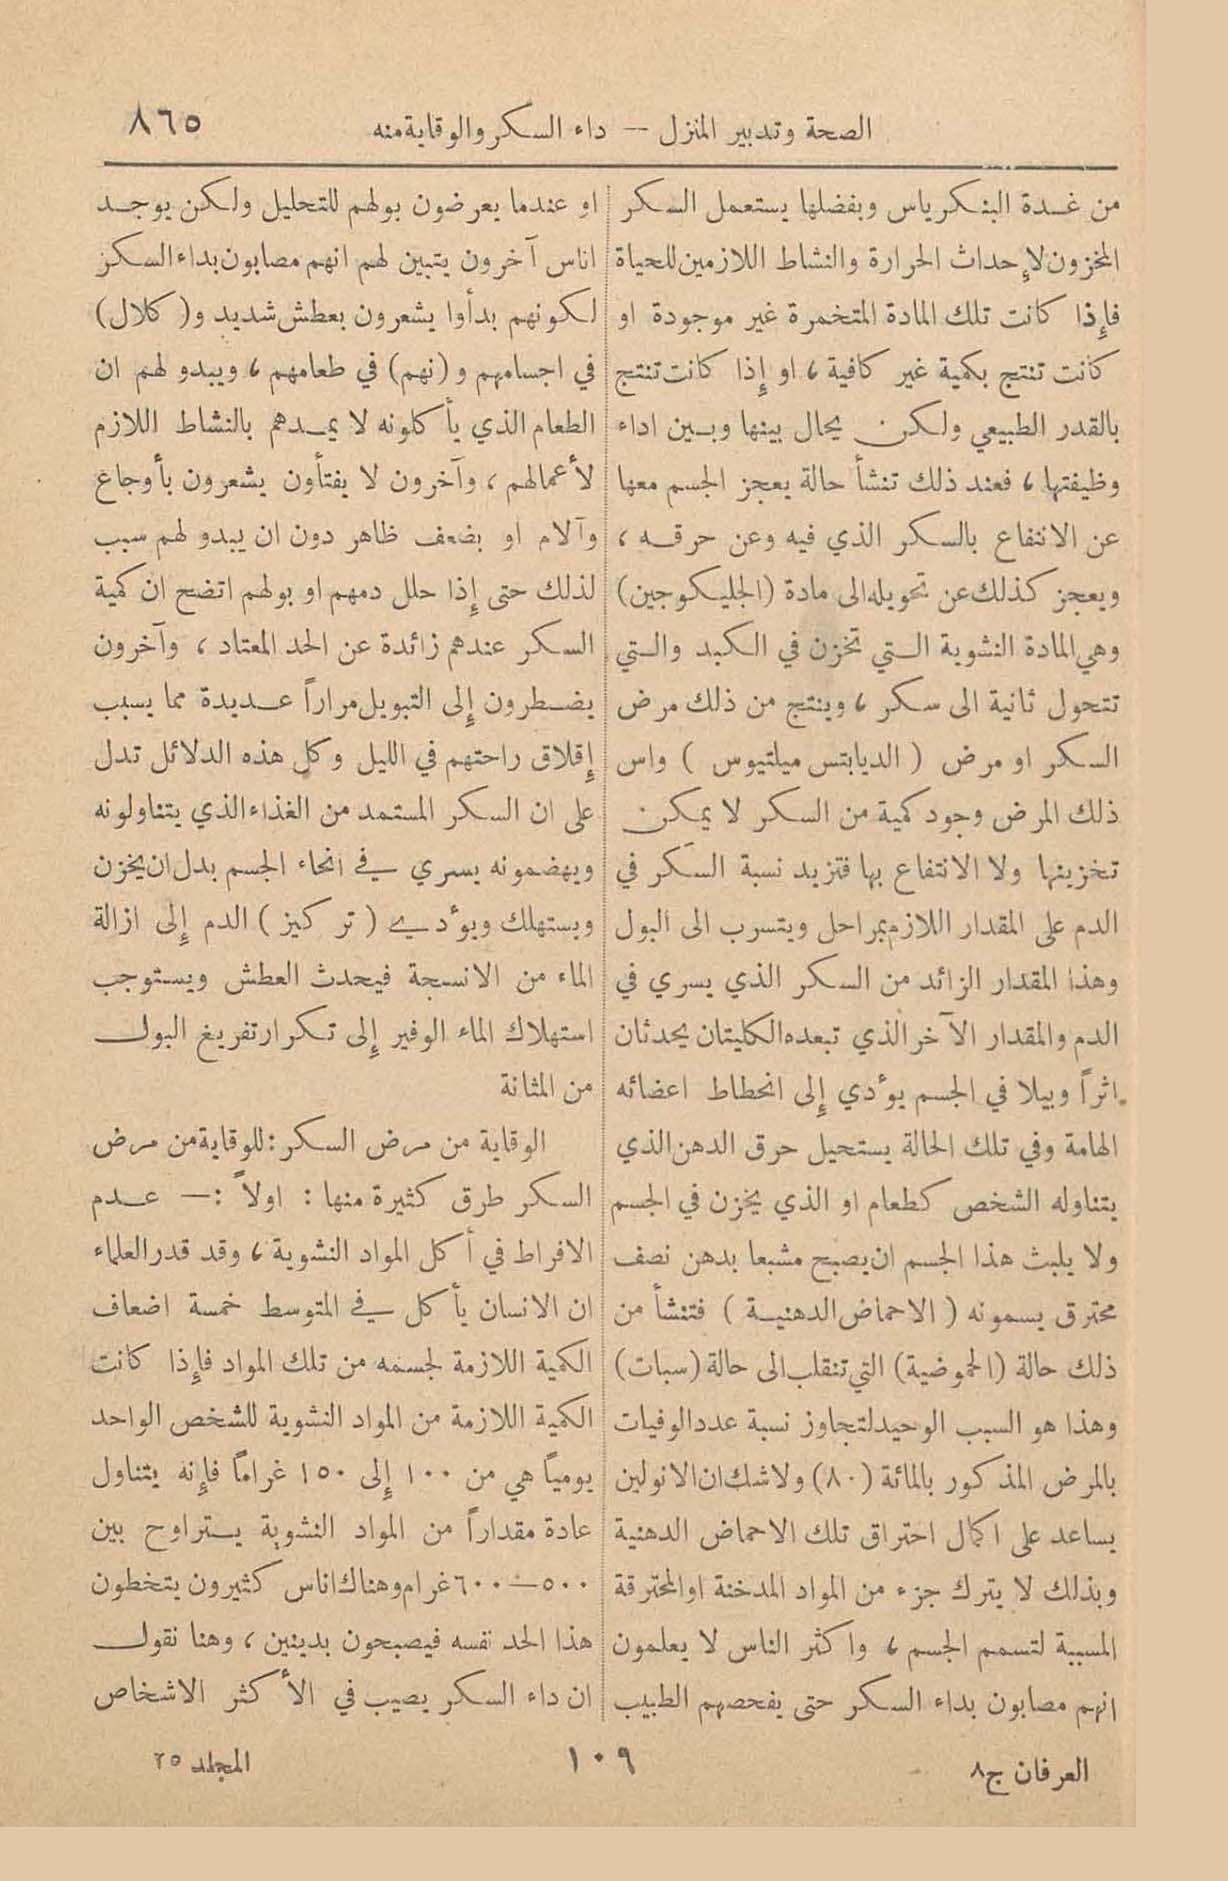 الصحة وتدبير المنزل — داء السكر والوقاية منه
٨٦٥
من غدة البنكرياس وبفضلها يستعمل السكر
المخزون لإحداث الحرارة والنشاط اللازمين للحياة
فإذا كانت تلك المادة المتخمرة غير موجودة او
كانت تنتج بكمية غير كافية ، او إذا كانت تنتج
بالقدر الطبيعي ولكن يحال بينها وبين اداء
وظيفتها ، فعند ذلك تنشأ حالة يعجز الجسم معها
عن الانتفاع بالسكر الذي فيه وعن حرقه ،
ويعجز كذلك عن تحويله الى مادة (الجليكوجين)
وهي المادة النشوية التي تخزن في الكبد والتي
تتحول ثانية الى سكر ، وينتج من ذلك مرض
السكر او مرض ( الديابتس ميلتيوس ) واس
ذلك المرض وجود كمية من السكر لا يمكن
تخزينها ولا الانتفاع بها فتزيد نسبة السكر في
الدم على المقدار اللازم بمراحل ويتسرب الى البول
وهذا المقدار الزائد من السكر الذي يسري في
الدم والمقدار الآخر الذي تبعده الكليتان يحدثان
اثراً وبيلا في الجسم يؤدي إلى انحطاط اعضائه
الهامة وفي تلك الحالة يستحيل حرق الدهن الذي
يتناوله الشخص كطعام او الذي يخزن في الجسم
ولا يلبث هذا الجسم ان يصبح مشبعا بدهن نصف
محترق يسمونه ( الاحماض الدهنية ) فتنشأ من
ذلك حالة (الحموضية) التي تنقلب الى حالة (سبات)
وهذا هو السبب الوحيد لتجاوز نسبة عدد الوفيات
بالمرض المذكور بالمائة (٨٠) ولا شك ان الانولين
يساعد على اكمال احتراق تلك الاحماض الدهنية
وبذلك لا يترك جزء من المواد المدخنة او المحترقة
المسببة لتسمم الجسم ، واكثر الناس لا يعلمون
انهم مصابون بداء السكر حتى يفحصهم الطبيب
او عندما يعرضون بولهم للتحليل ولكن يوجد
اناس آخرون يتبين لهم انهم مصابون بداء السكر
لكونهم بدأوا يشعرون بعطش شديد و( كلال )
في اجسامهم و (نهم) في طعامهم ، ويبدو لهم ان
الطعام الذي يأكلونه لا يمدهم بالنشاط اللازم
لأعمالهم ، وآخرون لا يفتأون يشعرون بأوجاع
وآلام او بضعف ظاهر دون ان يبدو لهم سبب
لذلك حتى إذا حلل دمهم او بولهم اتضح ان كمية
السكر عندهم زائدة عن الحد المعتاد ، وآخرون
يضطرون إلى التبويل مراراً عديدة مما يسبب
إقلاق راحتهم في الليل وكل هذه الدلائل تدل
على ان السكر المستمد من الغذاء الذي يتناولونه
ويهضمونه يسري في انحاء الجسم بدل ان يخزن
ويستهلك ويؤدي ( تركيز ) الدم إلى ازالة
الماء من الانسجة فيحدث العطش ويستوجب
استهلاك الماء الوفير إلى تكرار تفريغ البول
من المثانة
الوقاية من مرض السكر : للوقاية من مرض
السكر طرق كثيرة منها : اولاً :— عدم
الافراط في أكل المواد النشوية ، وقد قدر العلماء
ان الانسان يأكل في المتوسط خمسة اضعاف
الكمية اللازمة لجسمه من تلك المواد فإذا كانت
الكمية اللازمة من المواد النشوية للشخص الواحد
يومياً هي من ١٠٠ إلى ١٥٠ غراماً فإنه يتناول
عادة مقداراً من المواد النشوية يتراوح بين
٥٠٠—٦٠٠ غرام وهناك اناس كثيرون يتخطون
هذا الحد نفسه فيصبحون بدينين ، وهنا نقول
ان داء السكر يصيب في الأكثر الاشخاص
العرفان ج٨
١٠٩
المجلد ٢٥